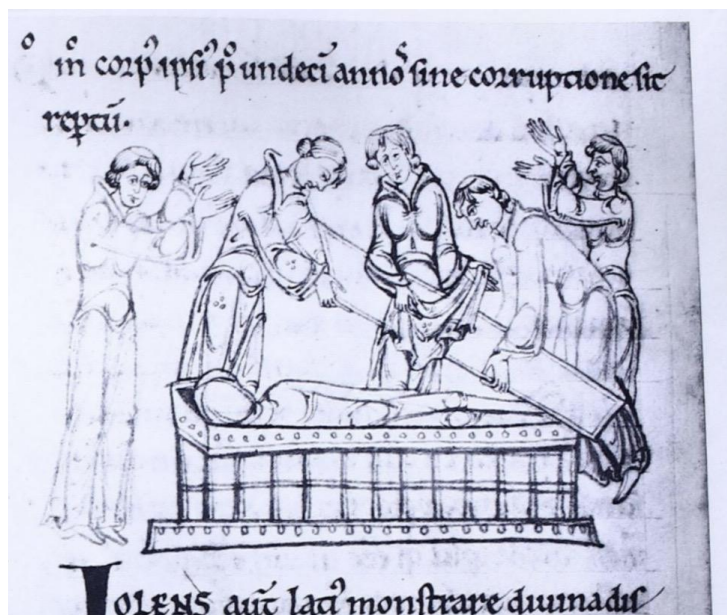 m̊ corpꝰ ipsiꝰ p̊ undeci annoꝝ sine corruptione sit
reptū.
IOLENS aūt laciꝰ monstrare diuina dis